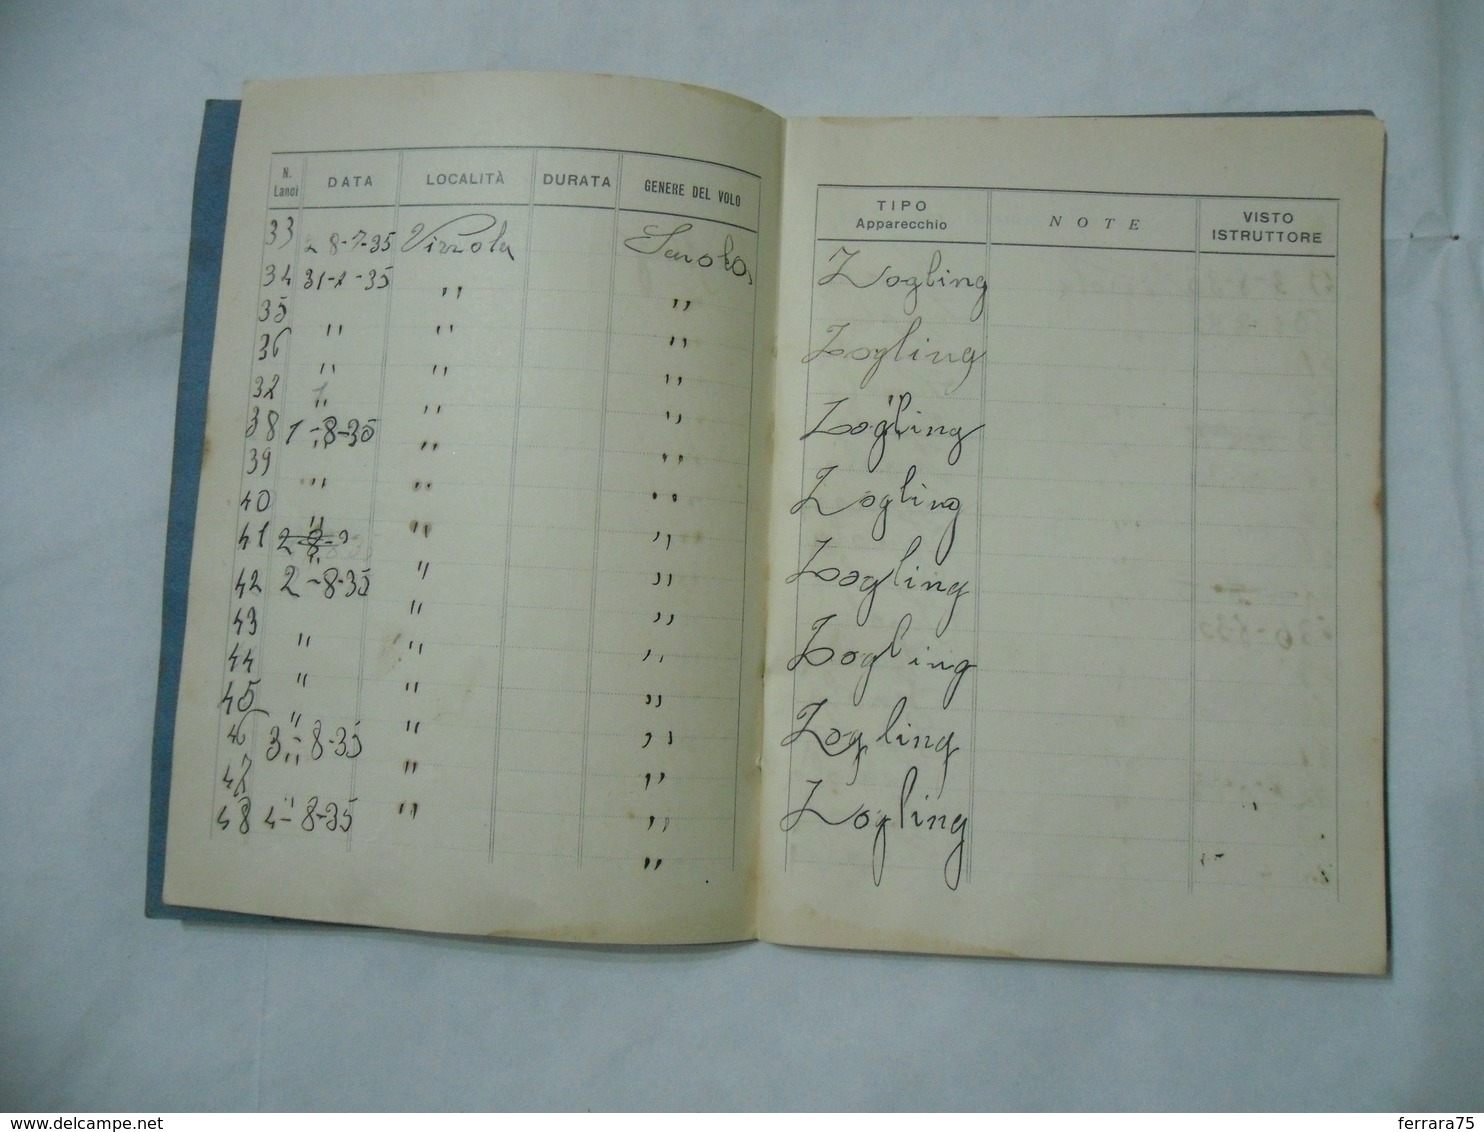 N. Lanci DATA LOCALITÀ DURATA GENERE DEL VOLO
33 28-7-35 Vizzola
34 31-7-35 " "
35 " " "
36 " " "
37 " " "
38 1-8-35 " "
39 " " "
40 " " "
41 " " "
42 2-8-35 " "
43 " " "
44 " " "
45 " " "
46 3-8-35 " "
47 " " "
48 4-8-35 " "
TIPO Apparecchio NOTE VISTO ISTRUTTORE
Zogling
Zogling
Zogling
Zogling
Zogling
Zogling
Zogling
Zogling
delcampe.net
ferrara75